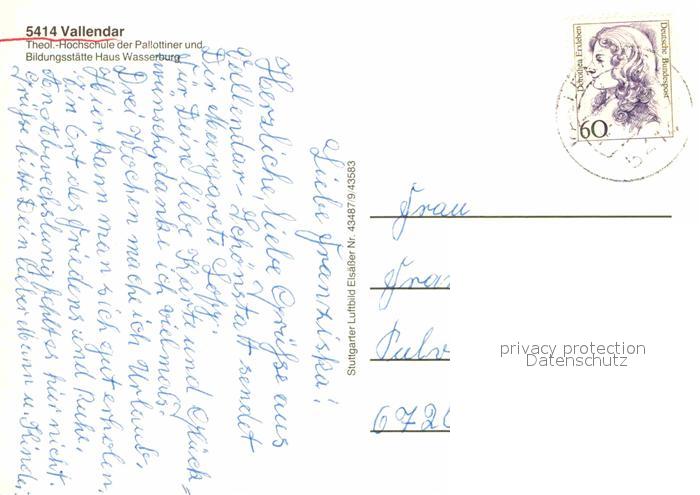 5414 Vallendar
Theol.-Hochschule der Pallottiner und
Bildungsstätte Haus Wasserburg
Liebe Franziska!
Herzliche, liebe Grüße aus
Vallendar-Schönstatt sendet
Dir Margarete
Für Deine liebe Karte und Glück=
wünsche, danke ich vielmals!
Drei Wochen mache ich Urlaub,
Hier kann man sich gut erholen.
Ein Ort des Friedens und Ruhe.
An Abwechslung fehlt es hier nicht.
Grüße bitte Dein lieber Mann u. Kinder.
Stuttgarter Luftbild Elsäßer Nr. 43487/9/43583
Dorothea Erxleben
Deutsche Bundespost
60
Frau
Fra
Pulv
6720
privacy protection
Datenschutz